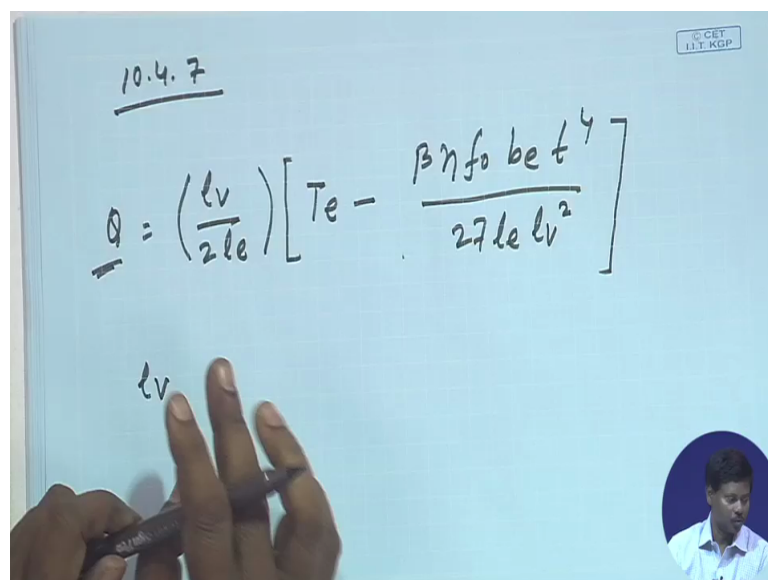 © CET
I.I.T. KGP
10.4.7
Q = (lv / 2le) [Te - βηfo be t⁴ / 27 le lv²]
lv